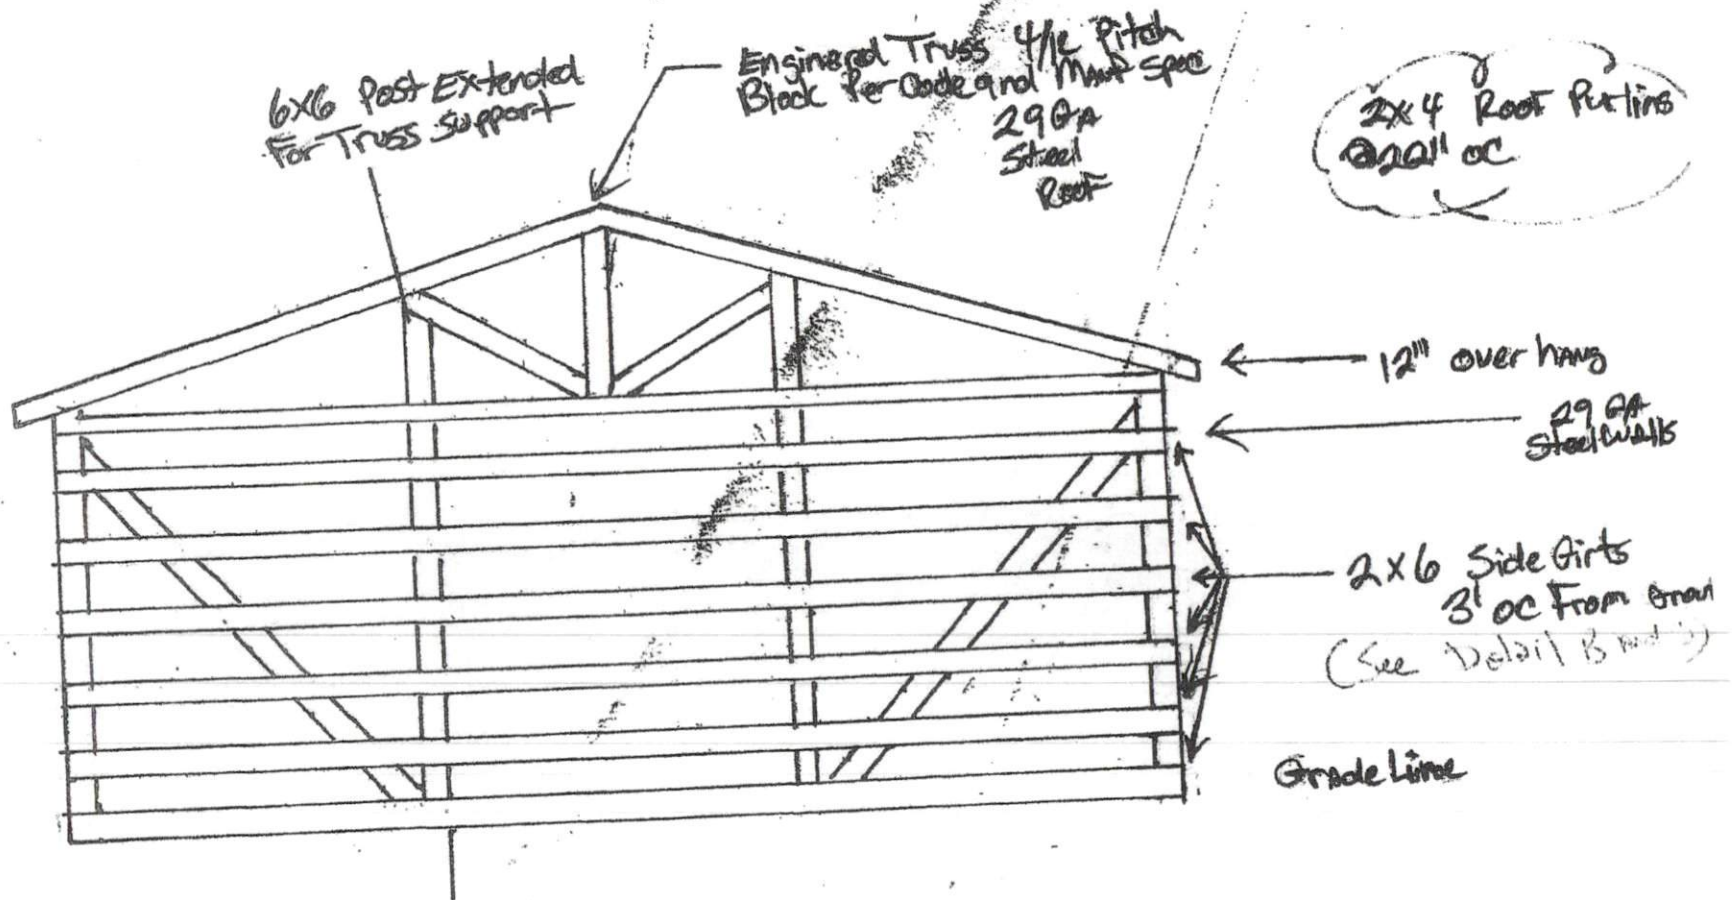 6x6 Post Extended
For Truss Support
Enginered Truss 4/12 Pitch
Block Per Code and Manf Spec
29 GA
Steel
Roof
2x4 Roof Purlins
@ OC
12" over hang
29 GA
Steel Walls
2x6 Side Girts
3' OC From
(See Detail B
Grade Line